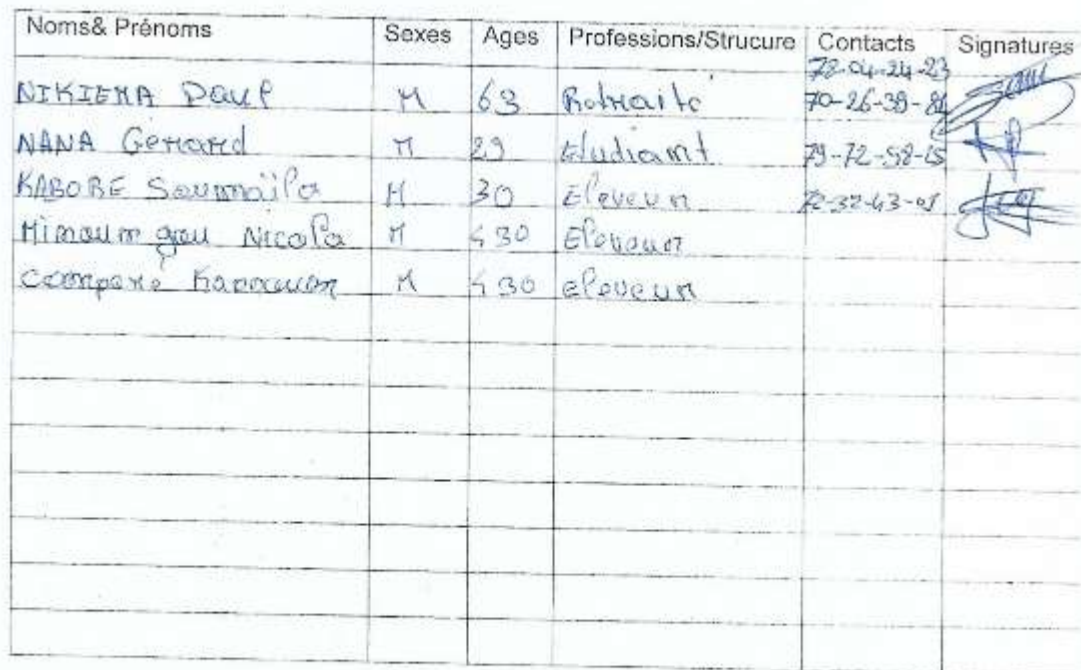 Noms& Prénoms Sexes Ages Professions/Strucure Contacts Signatures
78-04-24-23
NIKIEMA Paul M 63 Retraité 70-26-39-86
NANA Gerard M 29 Etudiant 79-72-58-15
KABORE Soumaïla M 30 Eleveur 72-32-43-01
Nicola M 30 Eleveur
Comparé M 30 eleveur